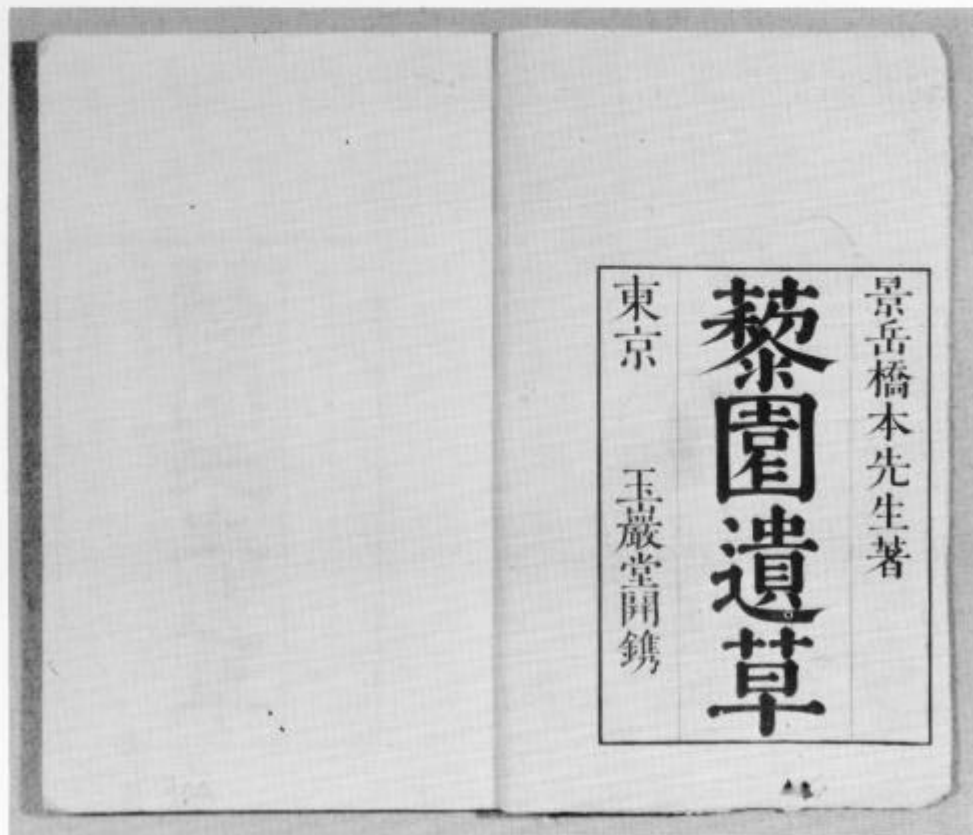 景岳橋本先生著
藜園遺草
東京　玉巖堂開鐫